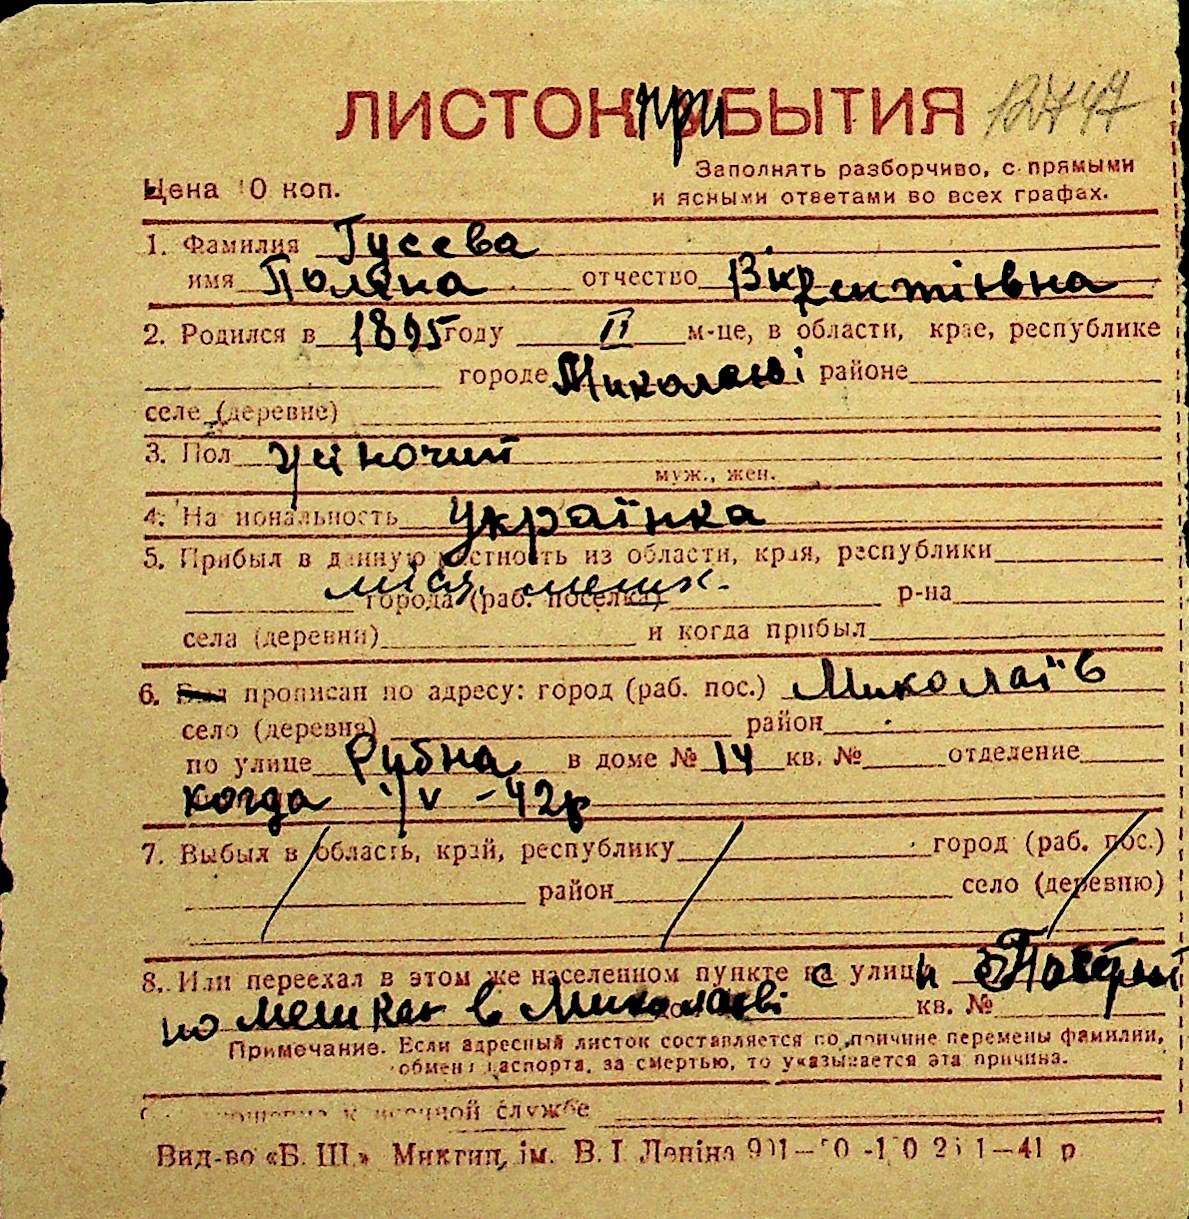 ЛИСТОК при БЫТИЯ 12747
Цена 10 коп.
Заполнять разборчиво, с прямыми
и ясными ответами во всех графах.
1. Фамилия Гусева
имя Поляна отчество Вікрентіївна
2. Родился в 1895 году II м-це, в области, крае, республике
городе Миколаєві районе
селе (деревне)
3. Пол жіночий
муж., жен.
4. Национальность українка
5. Прибыл в данную местность из области, края, республики
місц. мешк.
города (раб. поселка) р-на
села (деревни) и когда прибыл
6. Был прописан по адресу: город (раб. пос.) Миколаїв
село (деревня) район
по улице Рибна в доме № 14 кв. № отделение
когда 1/V - 42р
7. Выбыл в область, край, республику город (раб. пос.)
район село (деревню)
8. Или переехал в этом же населенном пункте на улицу
по мешкає в Миколаєві кв. №
Примечание. Если адресный листок составляется по причине перемены фамилии,
обмена паспорта, за смертью, то указывается эта причина.
к военной службе
Вид-во «Б. Ш.» Миктип, ім. В. І Леніна